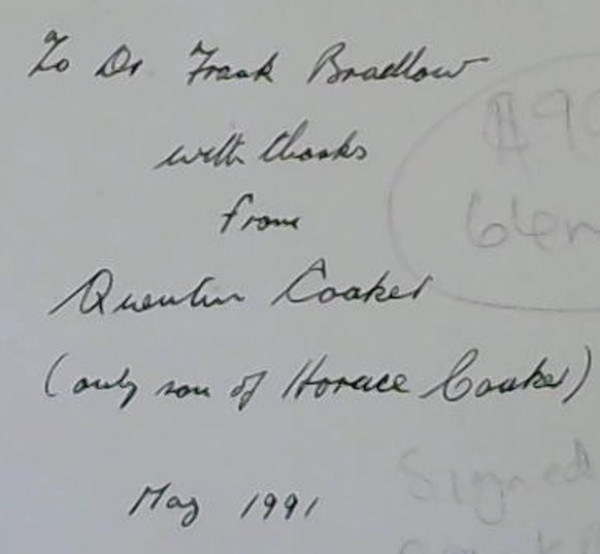 To Dr Frank Bradlow
with thanks
from
Quentin Coaker
(only son of Horace Coaker)
May 1991
$90
Signed